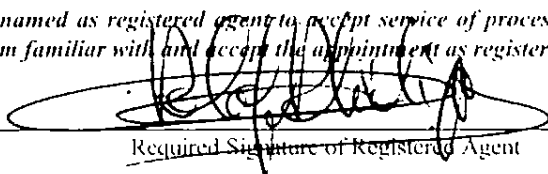 named as registered agent to accept service of proces
m familiar with and accept the appointment as register
Required Signature of Registered Agent